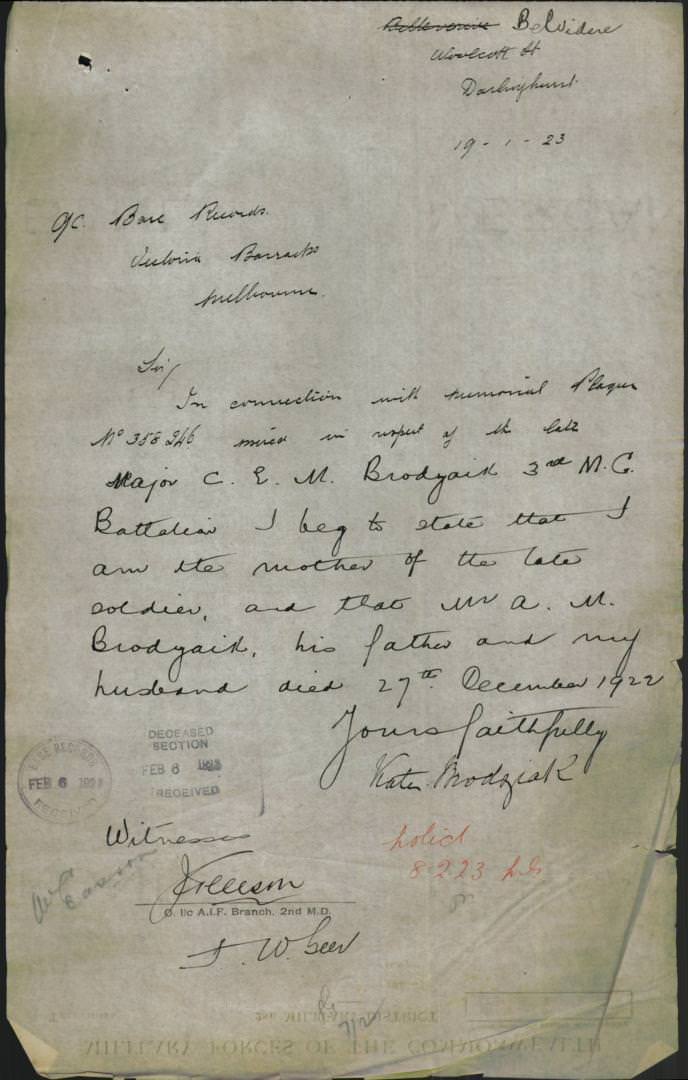 Bellevue Belvidere
Woolcott St
Darlinghurst.
19 - 1 - 23
O/C. Base Records.
Victoria Barracks
Melbourne.
Sir/
In connection with Memorial Plaque
No 358246 issued in respect of the late
Major C. E. M. Brodziak 3rd M.G.
Battalion I beg to state that I
am the mother of the late
soldier, and that Mr A. M.
Brodziak, his father and my
husband died 27th December 1922
Yours faithfully
Kate Brodziak
BASE RECORDS
FEB 6 1923
RECEIVED
DECEASED
SECTION
FEB 6 1923
RECEIVED
Witnesses
noted
8.2.23
O. i/c A.I.F. Branch. 2nd M.D.
F. W. Geer
7/2
2ND MILITARY DISTRICT
MILITARY FORCES OF THE COMMONWEALTH